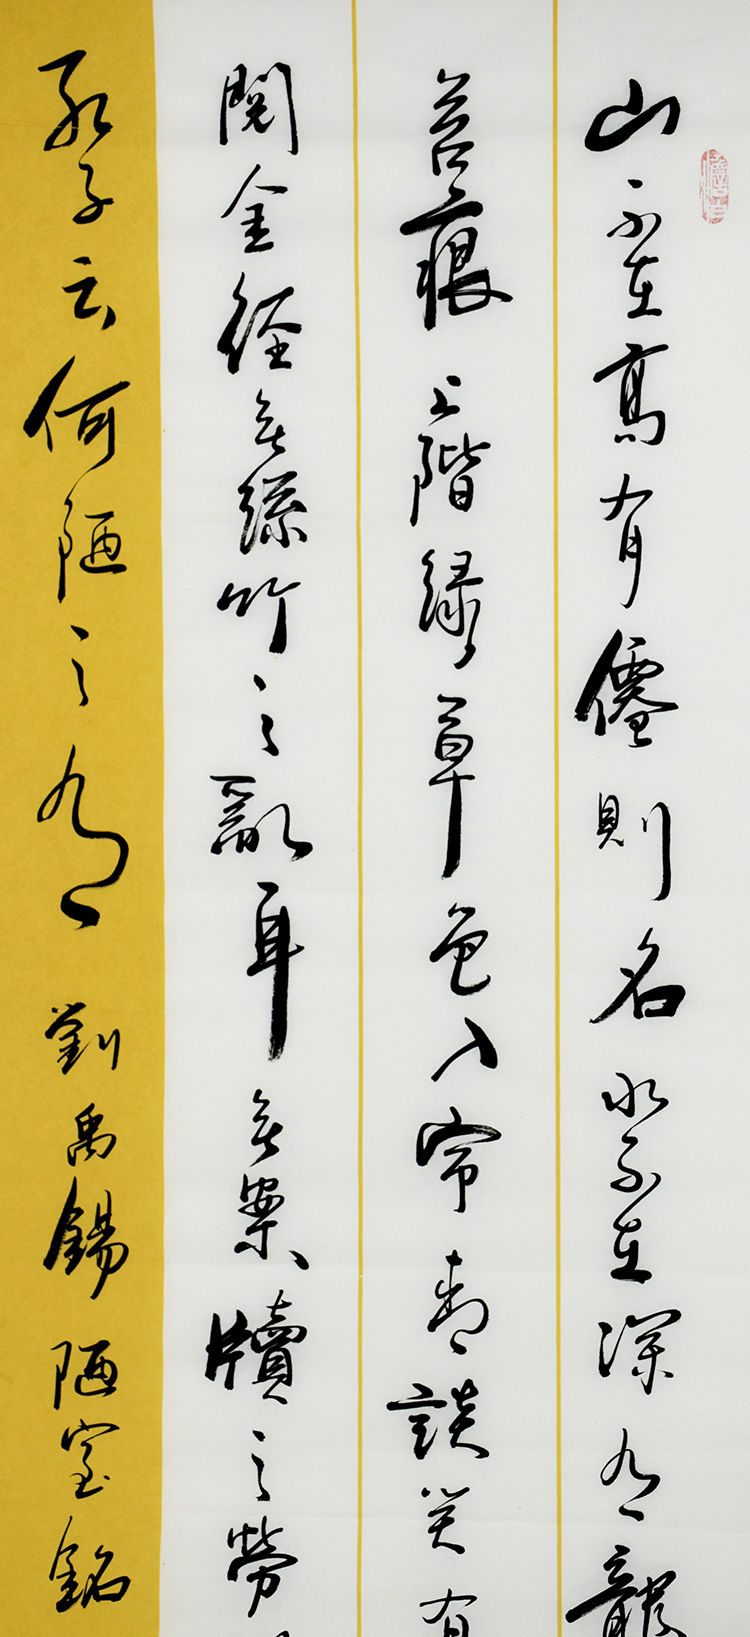 山不在高有僊則名水不在深有龍
苔痕上階綠草色入帘青談笑有
閱金經無絲竹之亂耳無案牘之勞
孔子云何陋之有 劉禹錫陋室銘